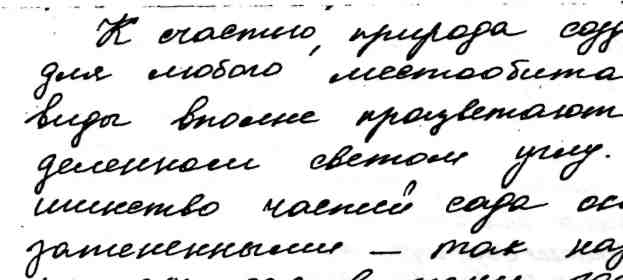 К счастью, природа созд
для любого местообита
виды вполне процветают
деленном светом углу.
шинство частей сада ок
затененными — так наз